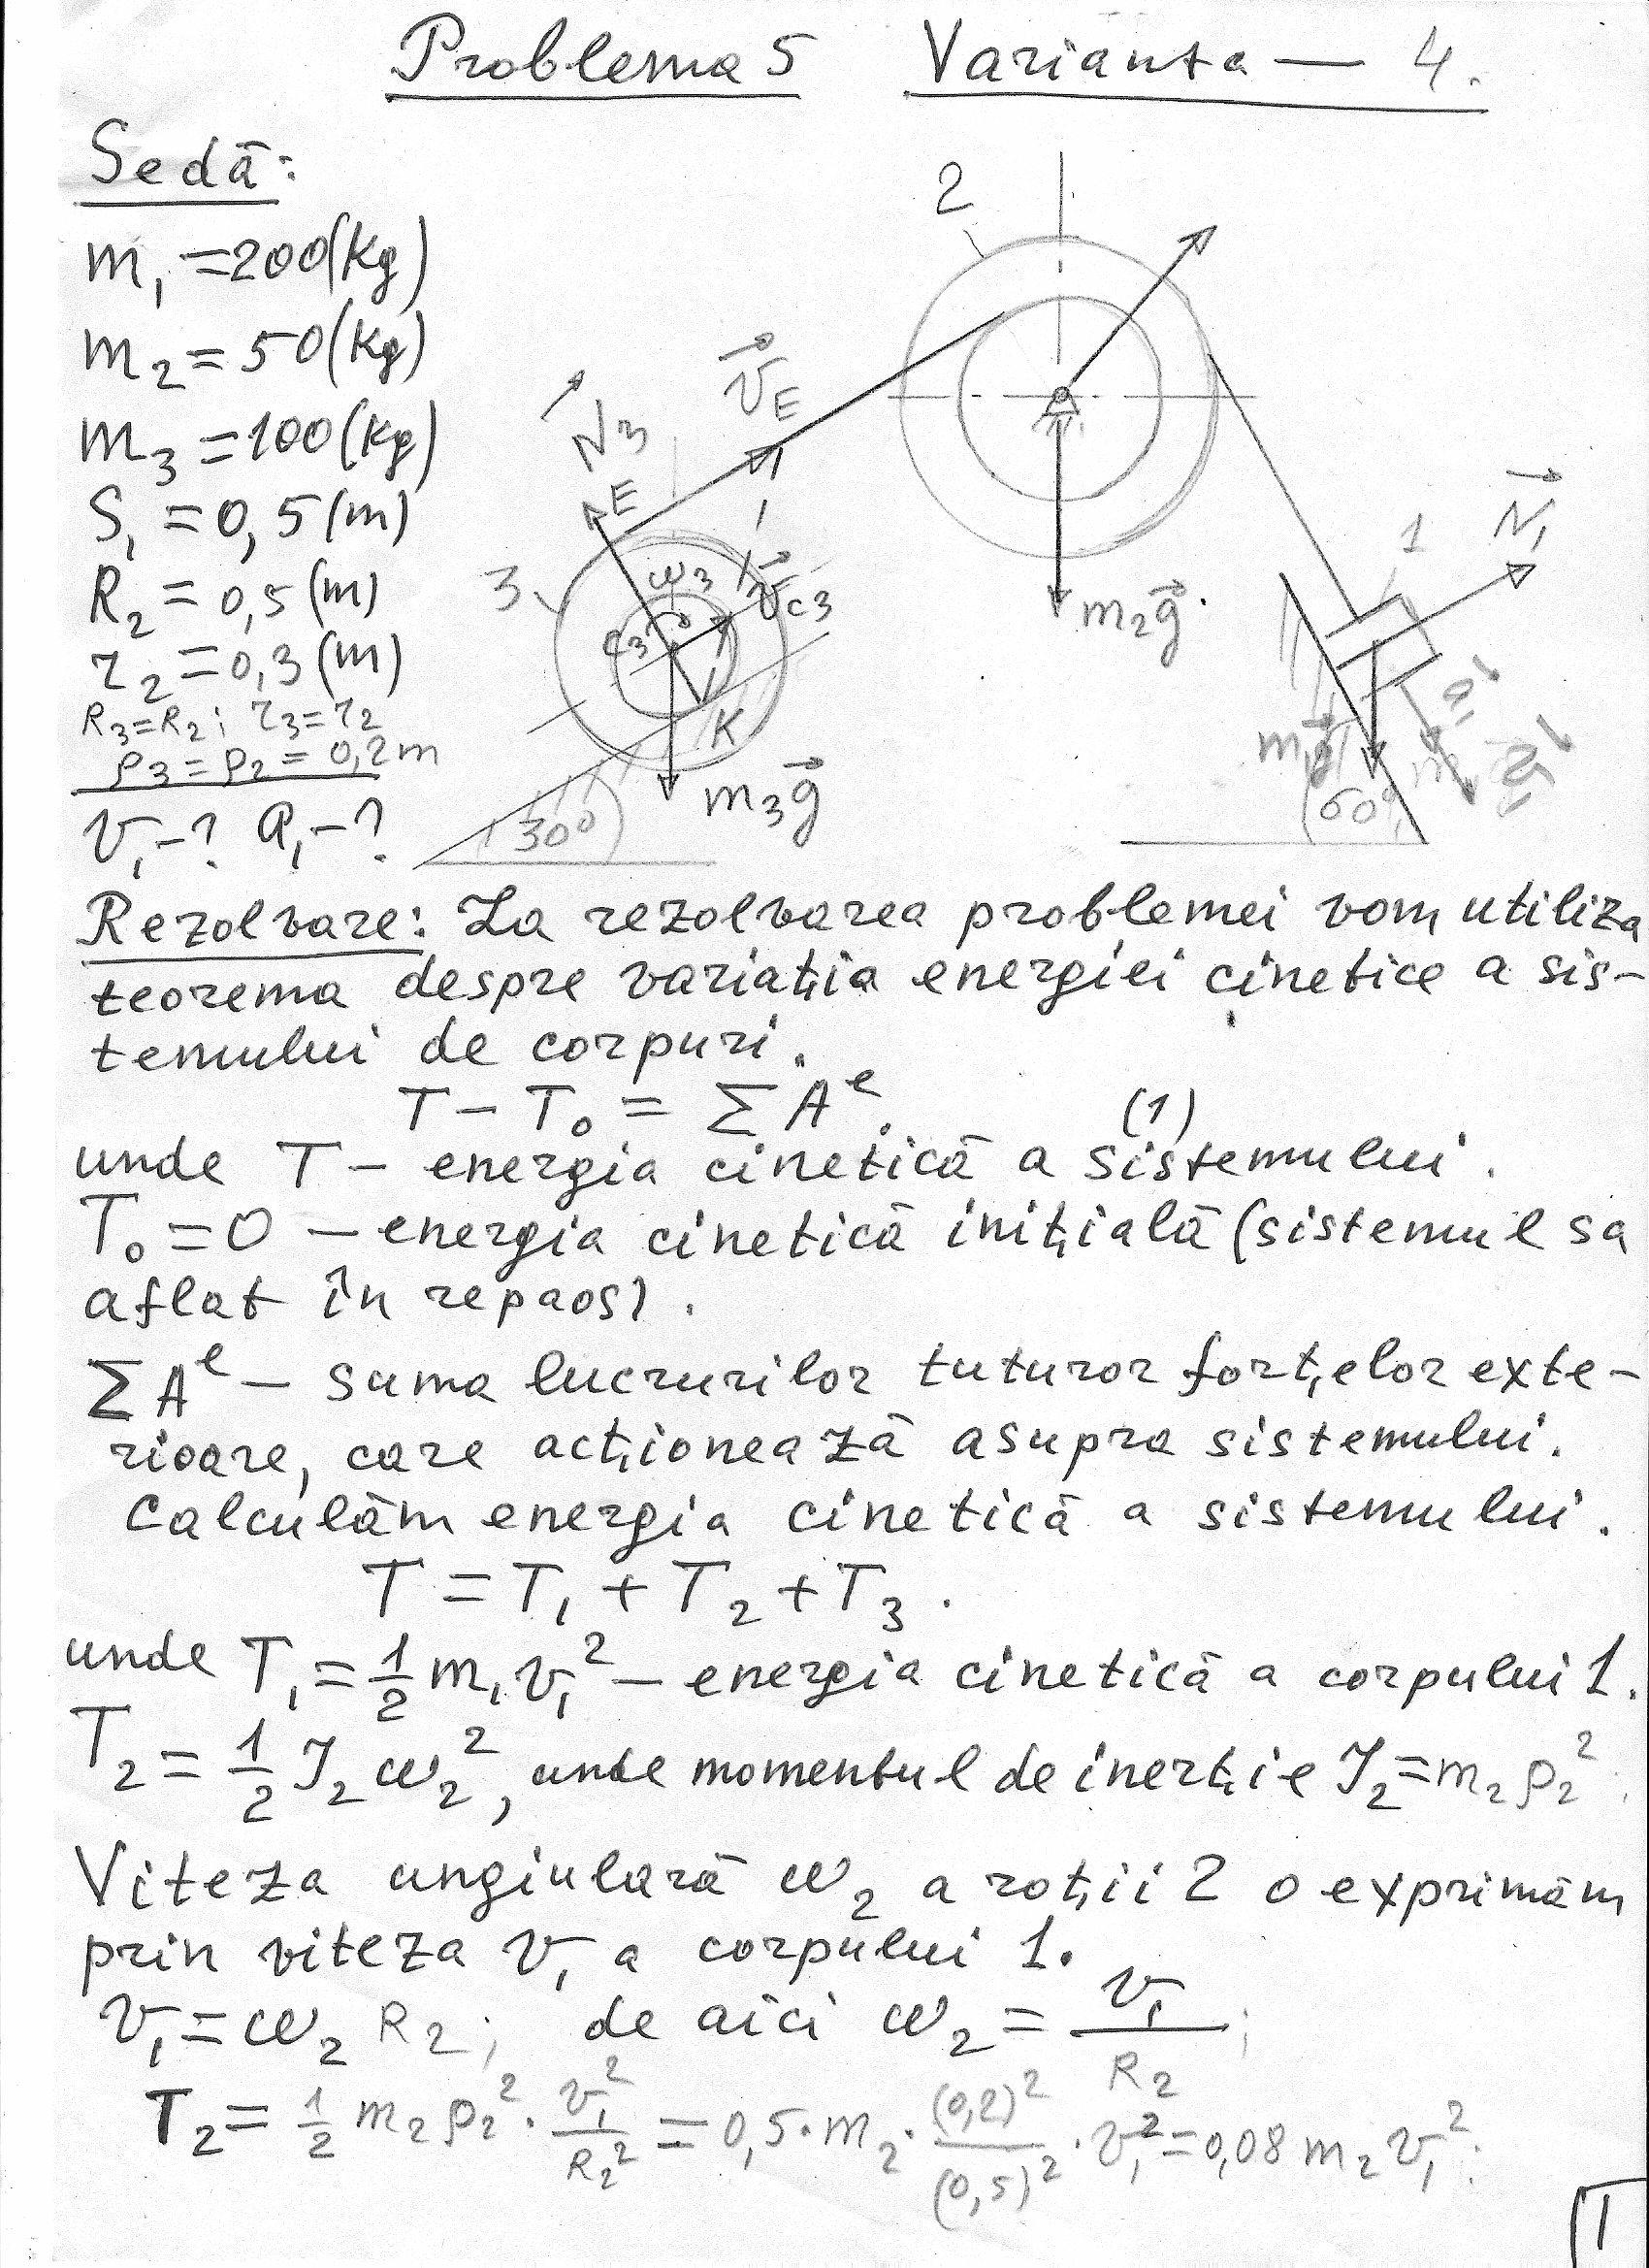 Problema 5 Varianta — 4.
Sedă:
m₁ = 200(kg)
m₂ = 50(kg)
m₃ = 100(kg)
S₁ = 0,5(m)
R₂ = 0,5(m)
r₂ = 0,3(m)
R₃=R₂; r₃=r₂
ρ₃=ρ₂=0,2m
v₁-? a₁-?
2
v⃗E
N⃗₃
E
3
ω₃
C₃
v⃗C₃
K
m₃g⃗
30°
m₂g⃗
1
N⃗₁
m₁g⃗
60°
Rezolvare: La rezolvarea problemei vom utiliza
teorema despre variația energiei cinetice a sis-
temului de corpuri.
T – T₀ = ΣAᵉ. (1)
unde T – energia cinetică a sistemului.
T₀ = 0 – energia cinetică inițială (sistemul sa
aflat în repaos).
ΣAᵉ – suma lucrurilor tuturor forțelor exte-
rioare, care acționează asupra sistemului.
Calculăm energia cinetică a sistemului.
T = T₁ + T₂ + T₃.
unde T₁ = 1/2 m₁v₁² – energia cinetică a corpului 1.
T₂ = 1/2 J₂ω₂², unde momentul de inerție J₂=m₂ρ₂²;
Viteza ungiulară ω₂ a roții 2 o exprimăm
prin viteza v₁ a corpului 1.
v₁ = ω₂R₂; de aici ω₂ = v₁/R₂;
T₂ = 1/2 m₂ρ₂² · v₁²/R₂² = 0,5·m₂·(0,2)²/(0,5)²·v₁² = 0,08m₂v₁².
1